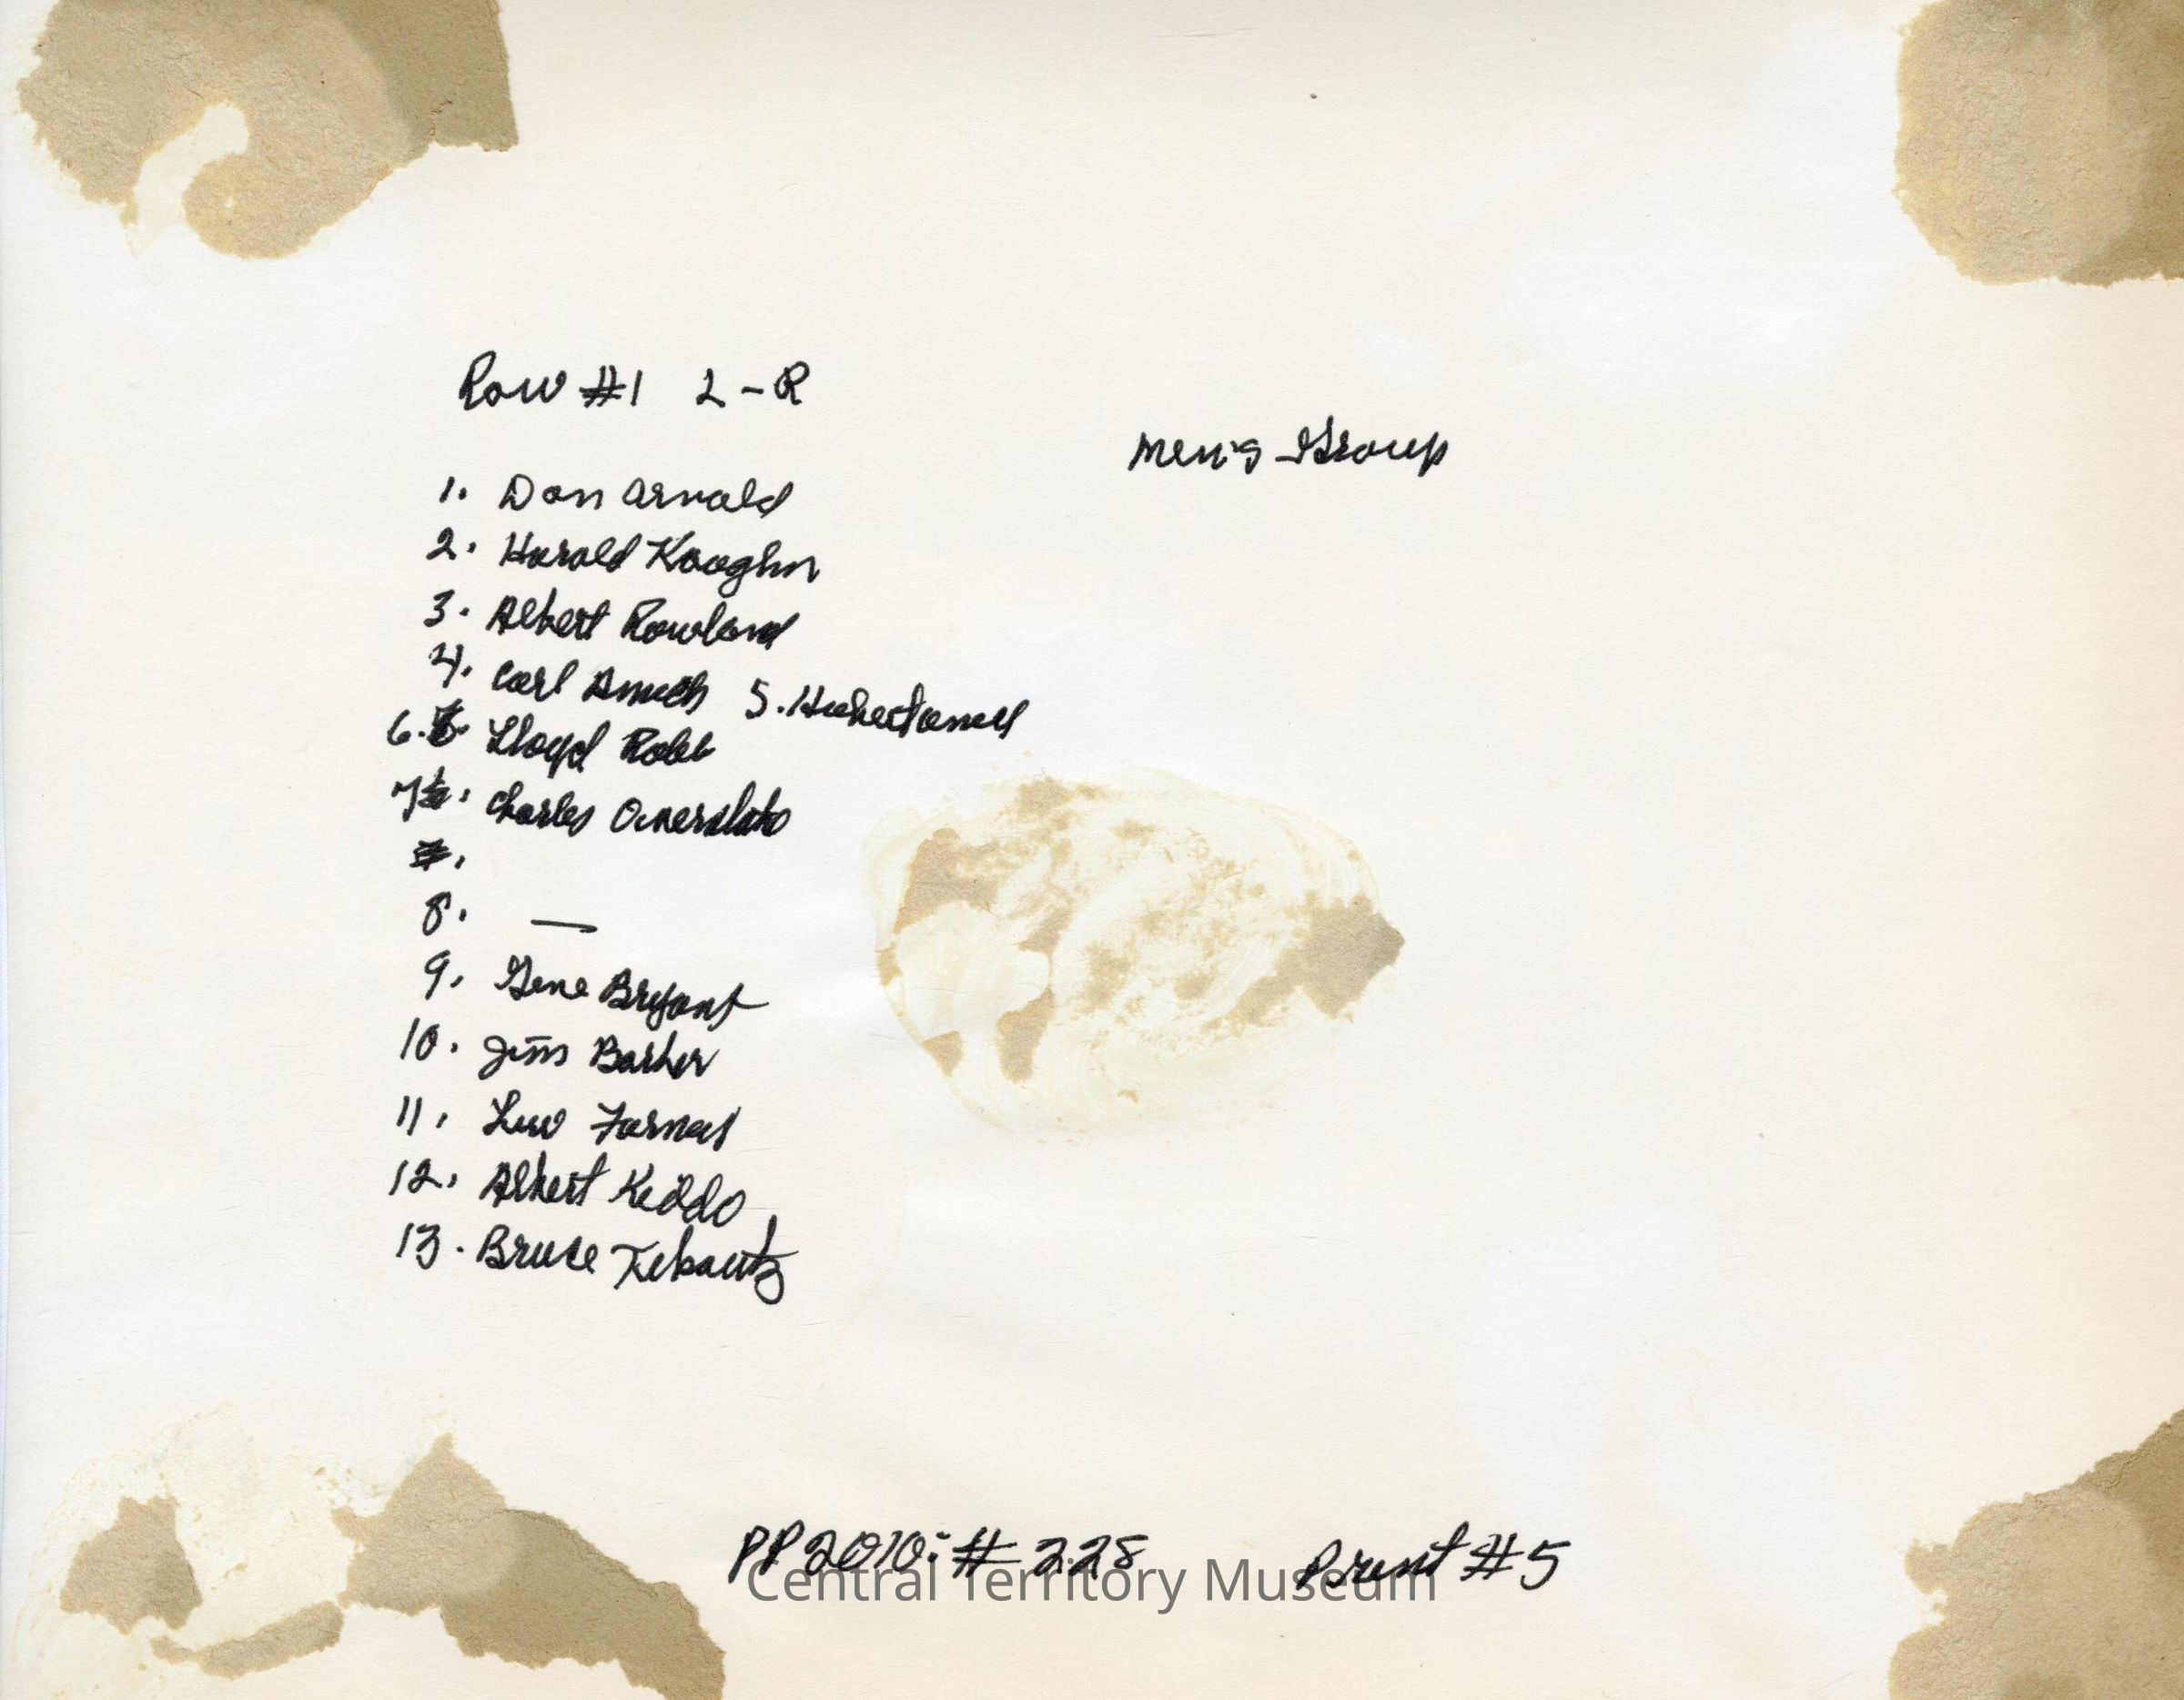 Row #1 L-R
Men's Group
1. Don Arnold
2. Harold Kaaghn
3. Albert Rowland
4. Carl 5.
6. Lloyd Robb
7. Charles
8. —
9. Gene Bryant
10. Jim Barker
11. Lew
12. Albert Kiddo
13. Bruce Tebautz
PP2010: # 2.28 Print #5
Central Territory Museum